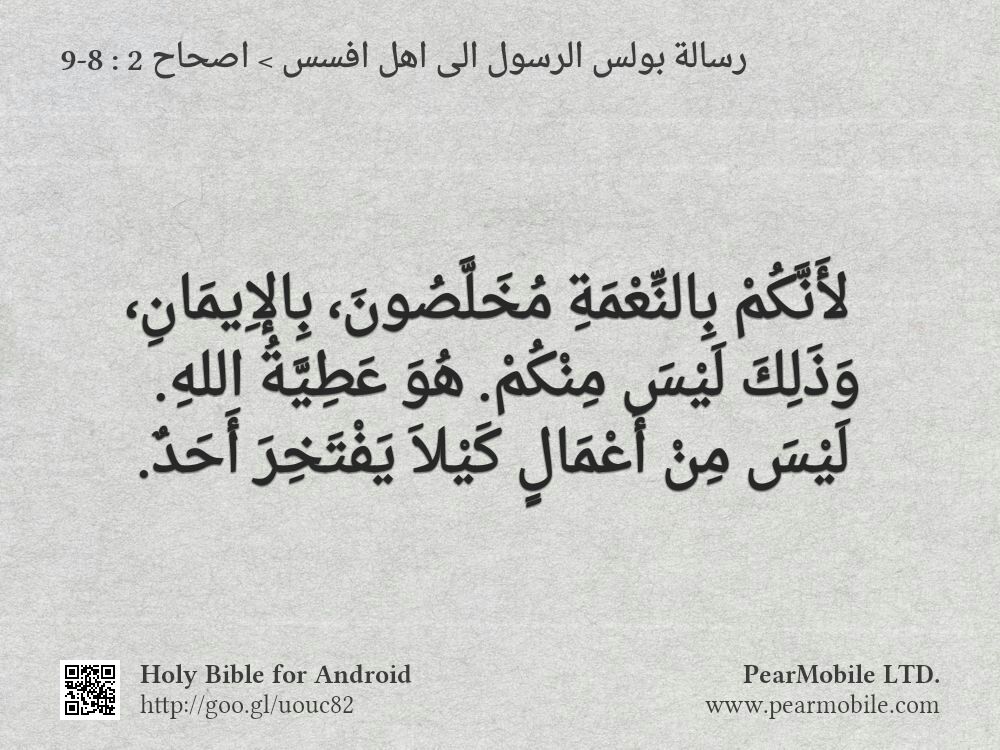 رسالة بولس الرسول الى اهل افسس > اصحاح 2 : 8-9
لأَنَّكُمْ بِالنِّعْمَةِ مُخَلَّصُونَ، بِالإِيمَانِ،
وَذَلِكَ لَيْسَ مِنْكُمْ. هُوَ عَطِيَّةُ اللهِ.
لَيْسَ مِنْ أَعْمَالٍ كَيْلاَ يَفْتَخِرَ أَحَدٌ.
Holy Bible for Android
http://goo.gl/uouc82
PearMobile LTD.
www.pearmobile.com